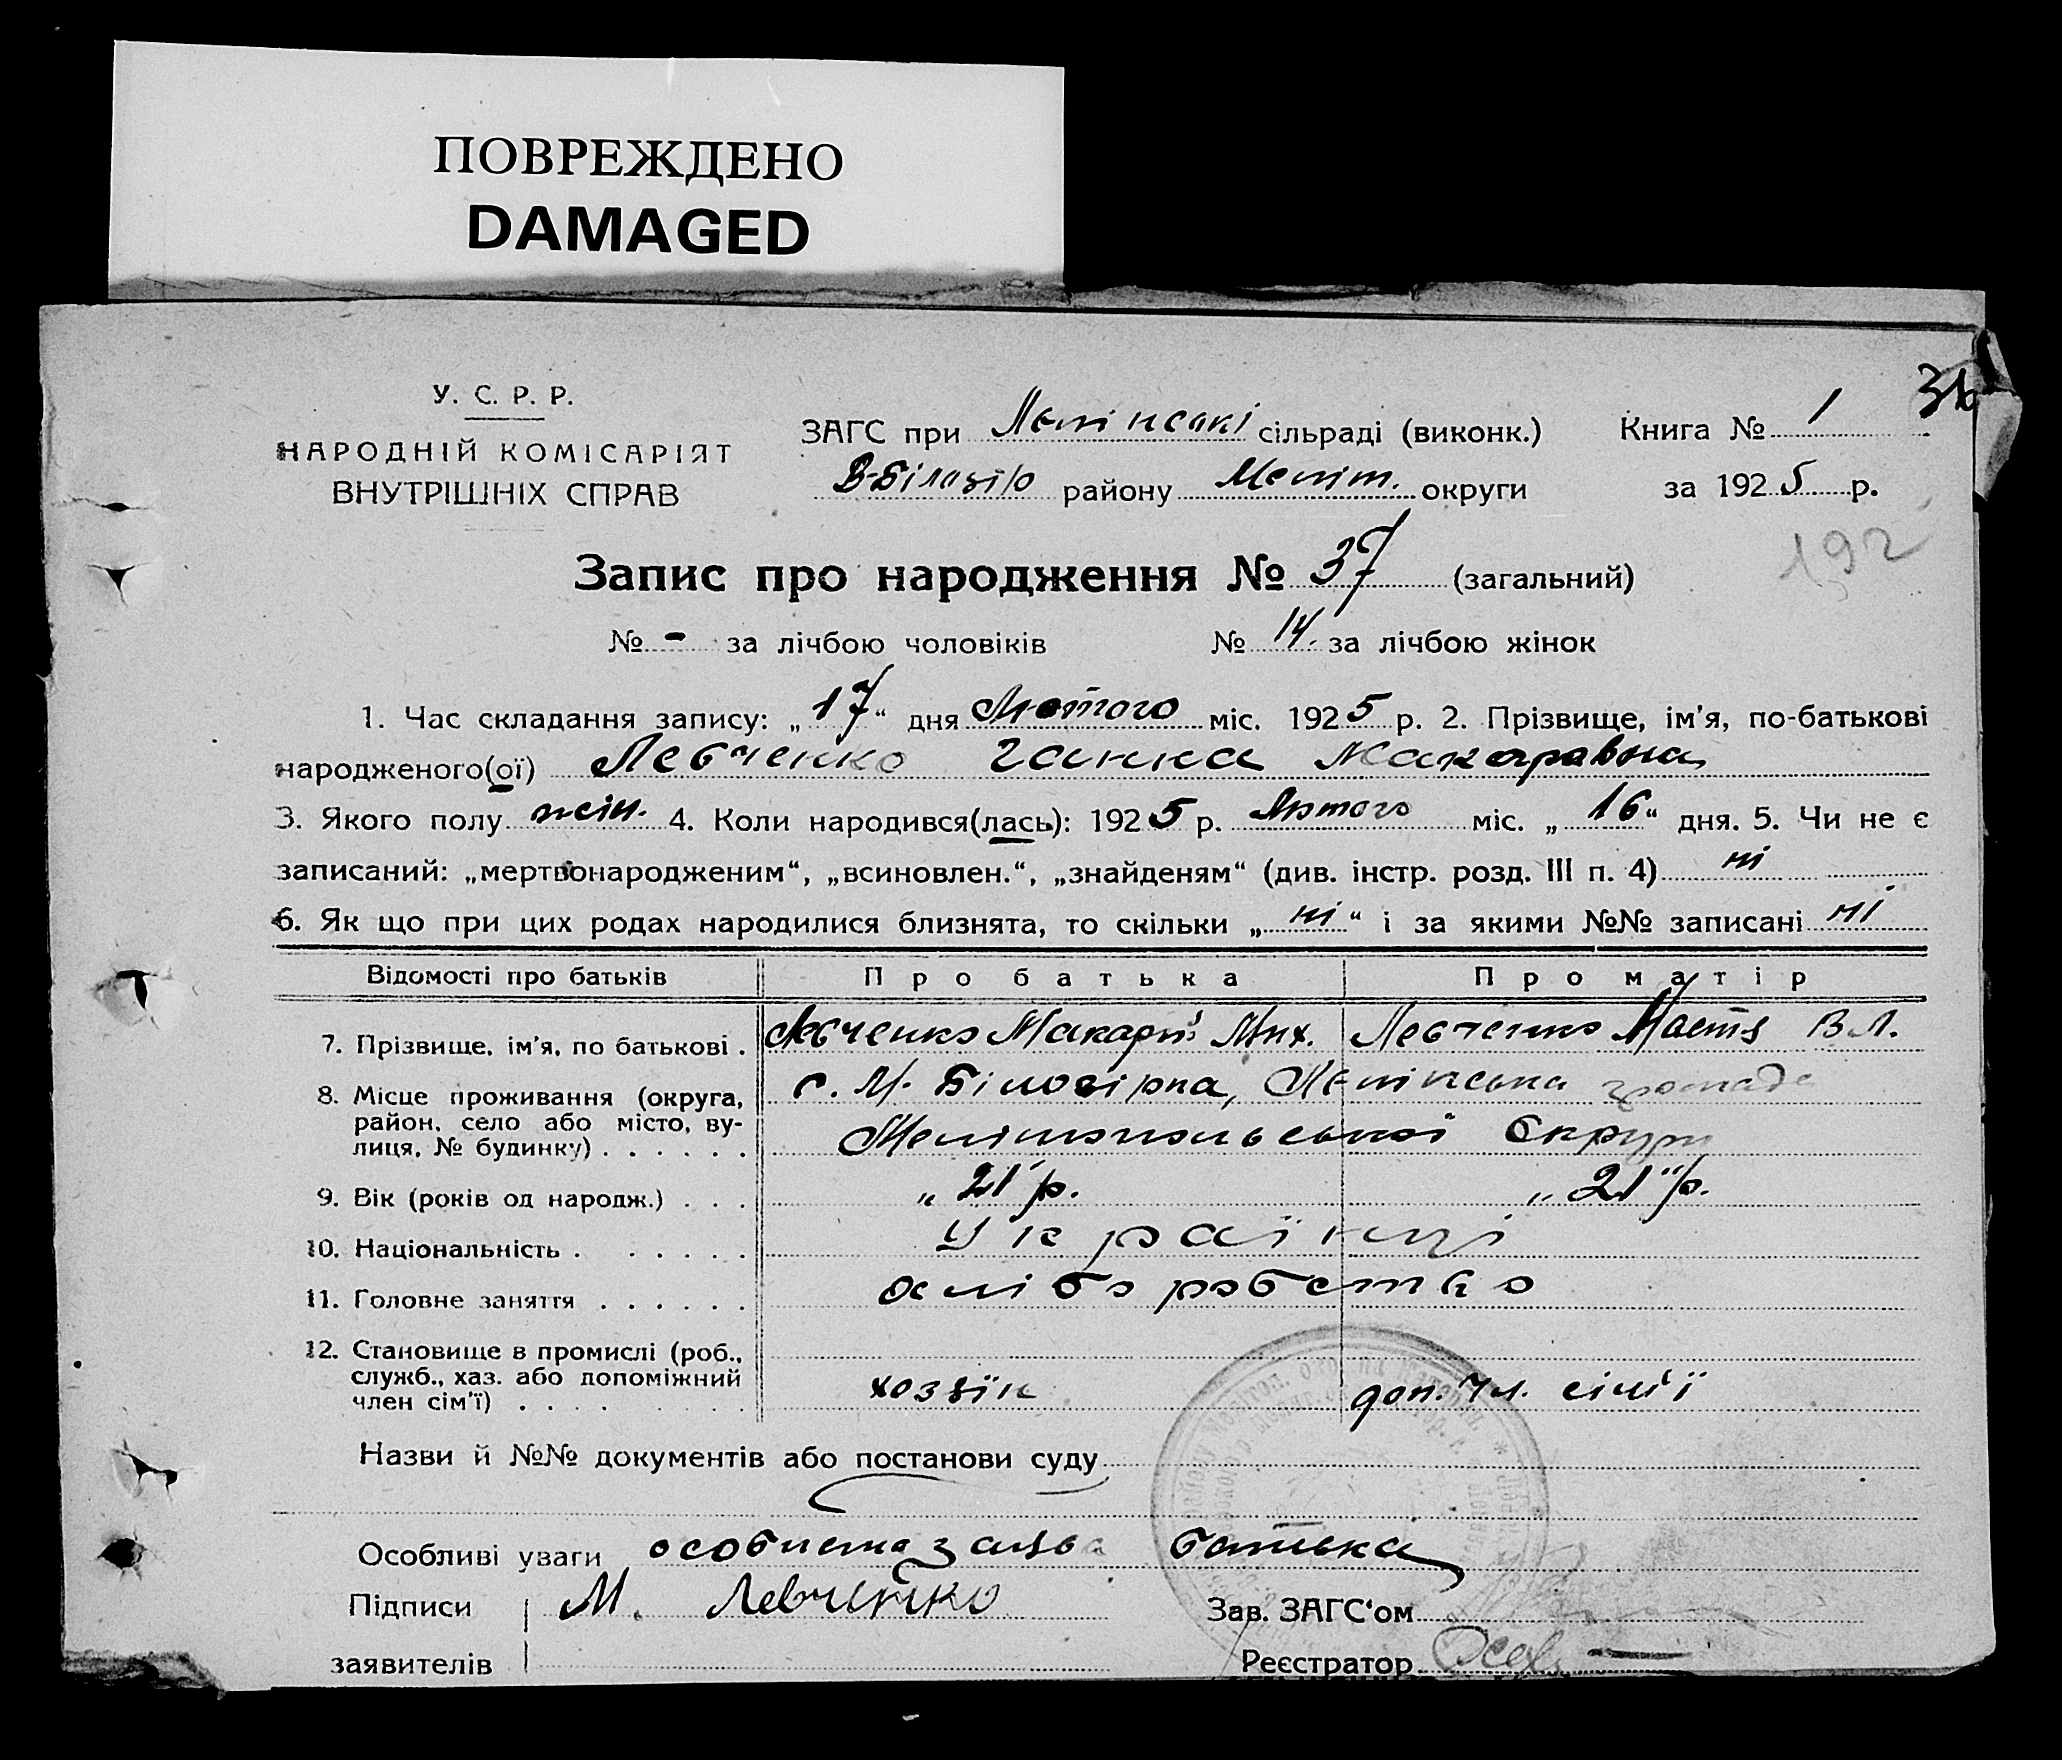 ПОВРЕЖДЕНО
DAMAGED
31
У. С. Р. Р.
НАРОДНІЙ КОМІСАРІЯТ
ВНУТРІШНІХ СПРАВ
ЗАГС при сільраді (виконк.) Книга № 1
В-Білозір району Меліт. округи за 1925 р.
192
Запис про народження № 37 (загальний)
№ - за лічбою чоловіків № 14. за лічбою жінок
1. Час складання запису: „17“ дня Лютого міс. 1925 р. 2. Прізвище, ім'я, по-батькові
народженого(ої) Левченко Ганна Макаравна
3. Якого полу жін. 4. Коли народився(лась): 1925 р. Лютого міс. „16“ дня. 5. Чи не є
записаний: „мертвонародженим“, „всиновлен.“, „знайденям“ (див. інстр. розд. III п. 4) ні
6. Як що при цих родах народилися близнята, то скільки „ні“ і за якими №№ записані ні
Відомості про батьків Про батька Про матір
7. Прізвище, ім'я, по батькові . Левченко Макарій Мих. Левченко Настя В Л.
8. Місце проживання (округа, с. М. Білозірка, громада
район, село або місто, ву- Мелітопольської Округи
лиця, № будинку) . . . . . .
9. Вік (років од народж.) . . . „21“ р. „21“ р.
10. Національність . . . . . . Українці
11. Головне заняття . . . . . . хліборобство
12. Становище в промислі (роб.,
служб., хаз. або допоміжний хозяїн доп. чл. сім'ї
член сім'ї) . . . .
Назви й №№ документів або постанови суду
Особливі уваги особиста заява батька
Підписи М. Левченко Зав. ЗАГС'ом
заявителів Реєстратор